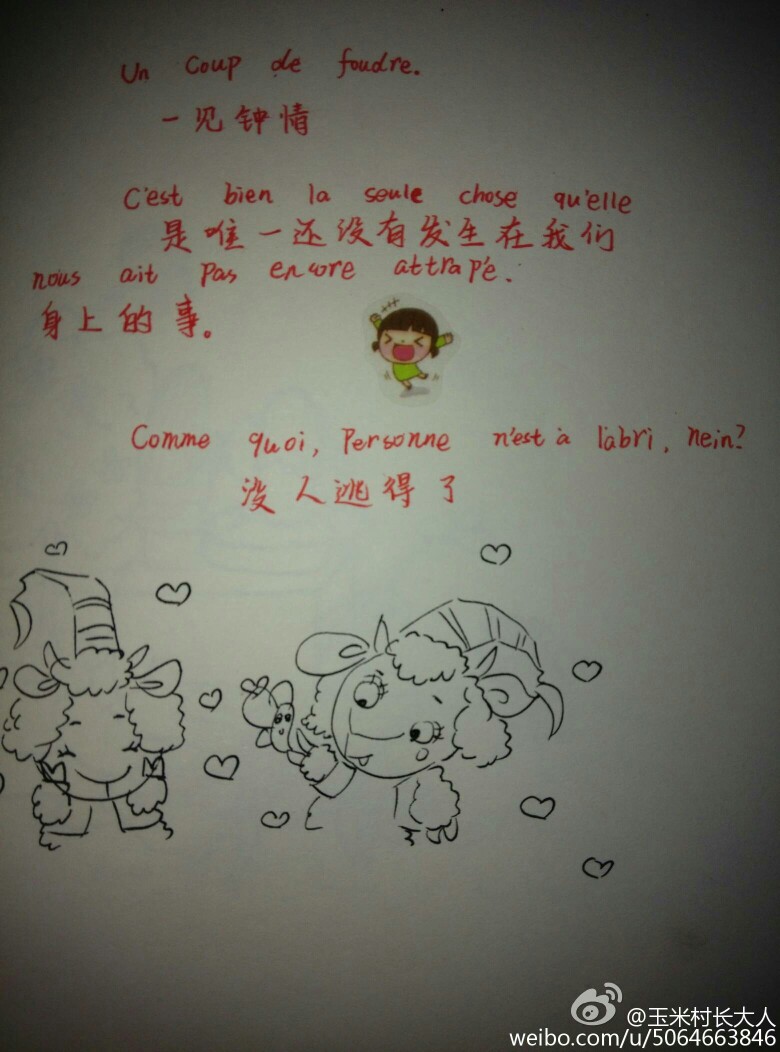 Un Coup de foudre.
一见钟情
C'est bien la seule chose qu'elle
是唯一还没有发生在我们
nous ait pas encore attrapé.
身上的事。
Comme quoi, Personne n'est à l'abri, nein?
没人逃得了
@玉米村长大人
weibo.com/u/5064663846